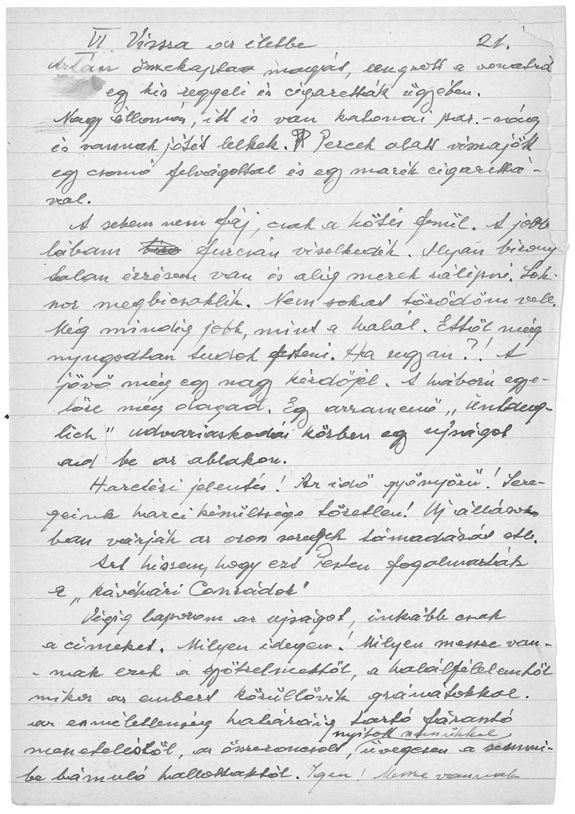 VI Vissza az életbe 21.
Aztán összekapta magát, leugrott a vonatról
egy kis reggeli és cigaretták ügyében.
Nagy állomás, itt is van katonai par.-ság
és vannak jótét lelkek. Percek alatt visszajött
egy csomó felvágottal és egy marék cigarettá-
val.
A sebem nem fáj, csak a kötés feszül. A jobb
lábam furcsán viselkedik. Olyan bizony
talan érzésem van és alig merek rálépni. Sok-
szor megbicsaklik. Nem sokat törődöm vele.
Még mindig jobb, mint a halál. Ettől még
nyugodtan tudok festeni. Ha ugyan?! A
jövő még egy nagy kérdőjel. A háború egye-
lőre még dagad. Egy arramenő
udvariaskodás közben egy ujságot
ad be az ablakon.
Harctéri jelentés! Az idő gyönyörű! Sere-
geink harci készültsége töretlen! Uj állások
ban várják az orosz seregek támadását stb.
Azt hiszem, hogy ezt Pesten fogalmazták
a „kávéházi Conrádok"
Végig lapozom az ujságot, inkább csak
a címeket. Milyen idegen! Milyen messze van-
nak ezek a gyötrelmektől, a halálfélelemtől
mikor az embert körüllövik gránátokkal.
az eszméletlenség határáig tartó fárasztó
nyitott szemükkel
meneteléstől, az összeroncsolt, üvegesen a semmi-
be bámuló hallottaktól. Igen! Messze vannak